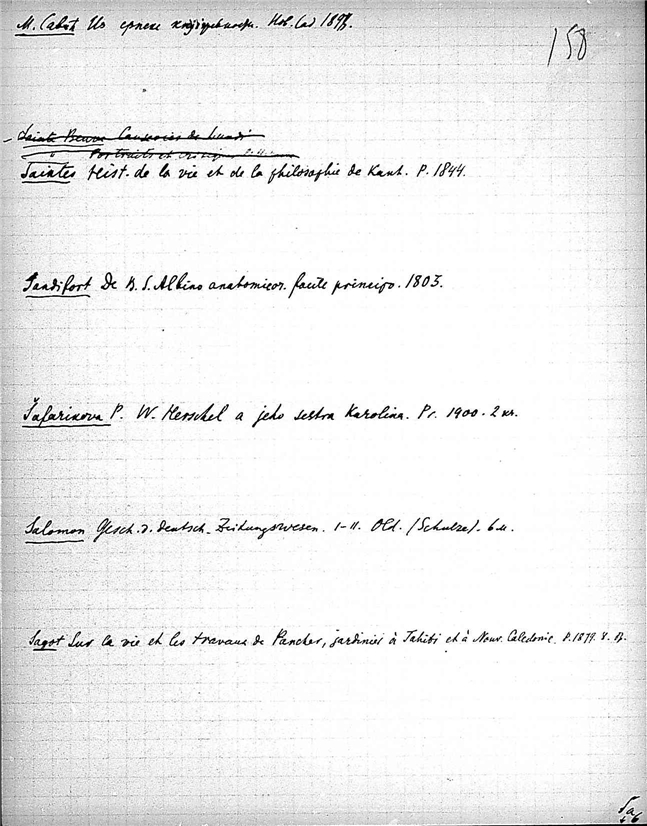 М. Савић Из српске књижевности. Нов. Сад 1898.
158
– Sainte Beuve Causeries de Lundi
" Portraits et critiques
Saintes Hist. de la vie et de la philosophie de Kant. P. 1844.
Sandifort De B. S. Albino anatomicor. facile principo. 1803.
Šafarikova P. W. Herschel a jeho sestra Karolina. Pr. 1900. 2 kr.
Salomon Gesch. d. deutsch. Zeitungswesen. I–II. Old. (Schulze). 6 M.
Sagot Sur la vie et les travaux de Pancher, jardinier à Tahiti et à Nouv. Caledonie. P. 1879. 8. B.
Sa